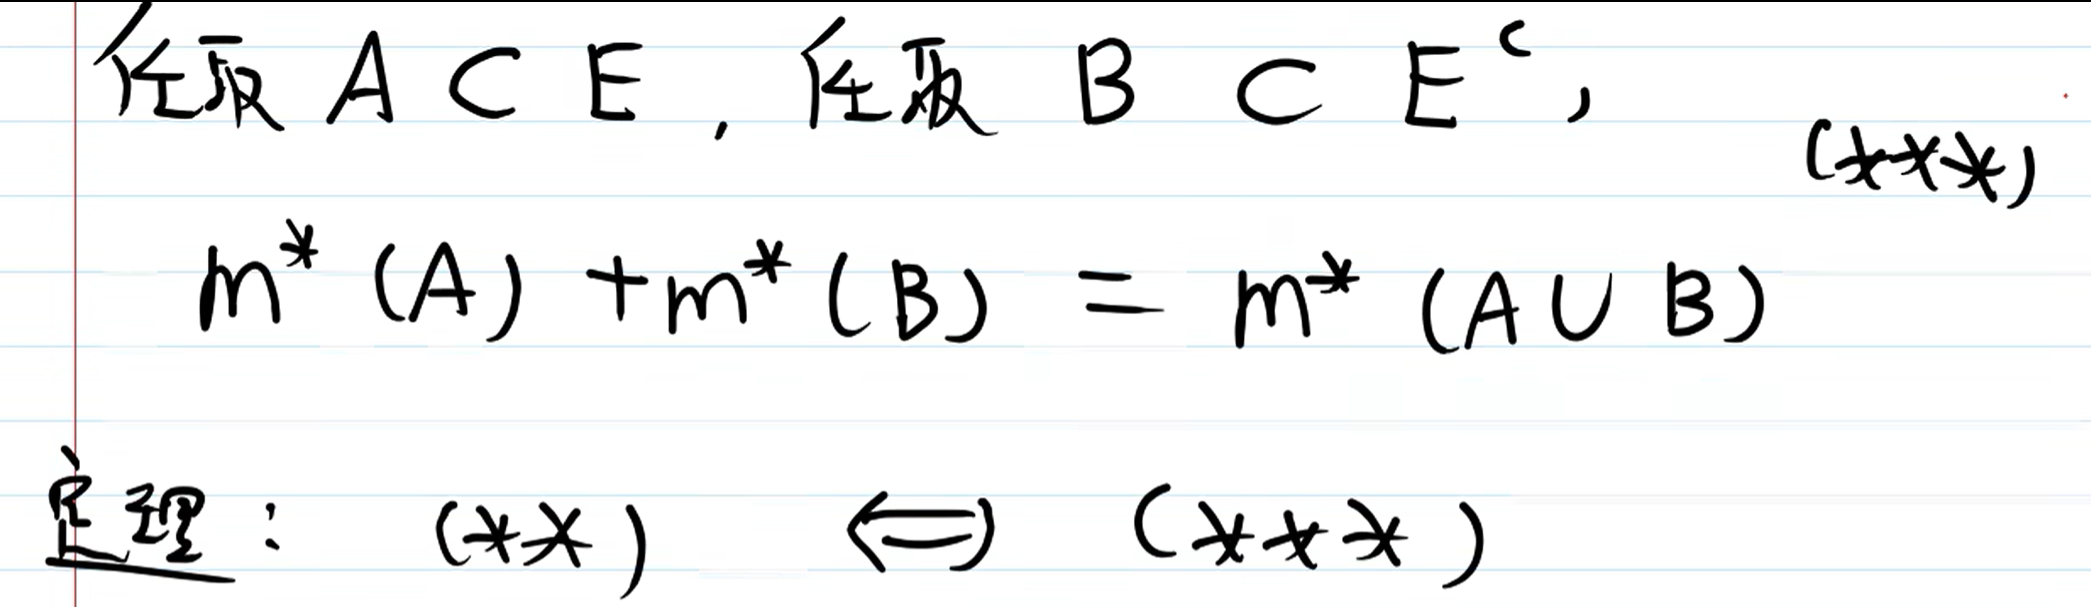 任取 A ⊂ E , 任取 B ⊂ E^c ,
(***)
m* (A) + m* (B) = m* (A ∪ B)
定理 : (**) ⟺ (***)